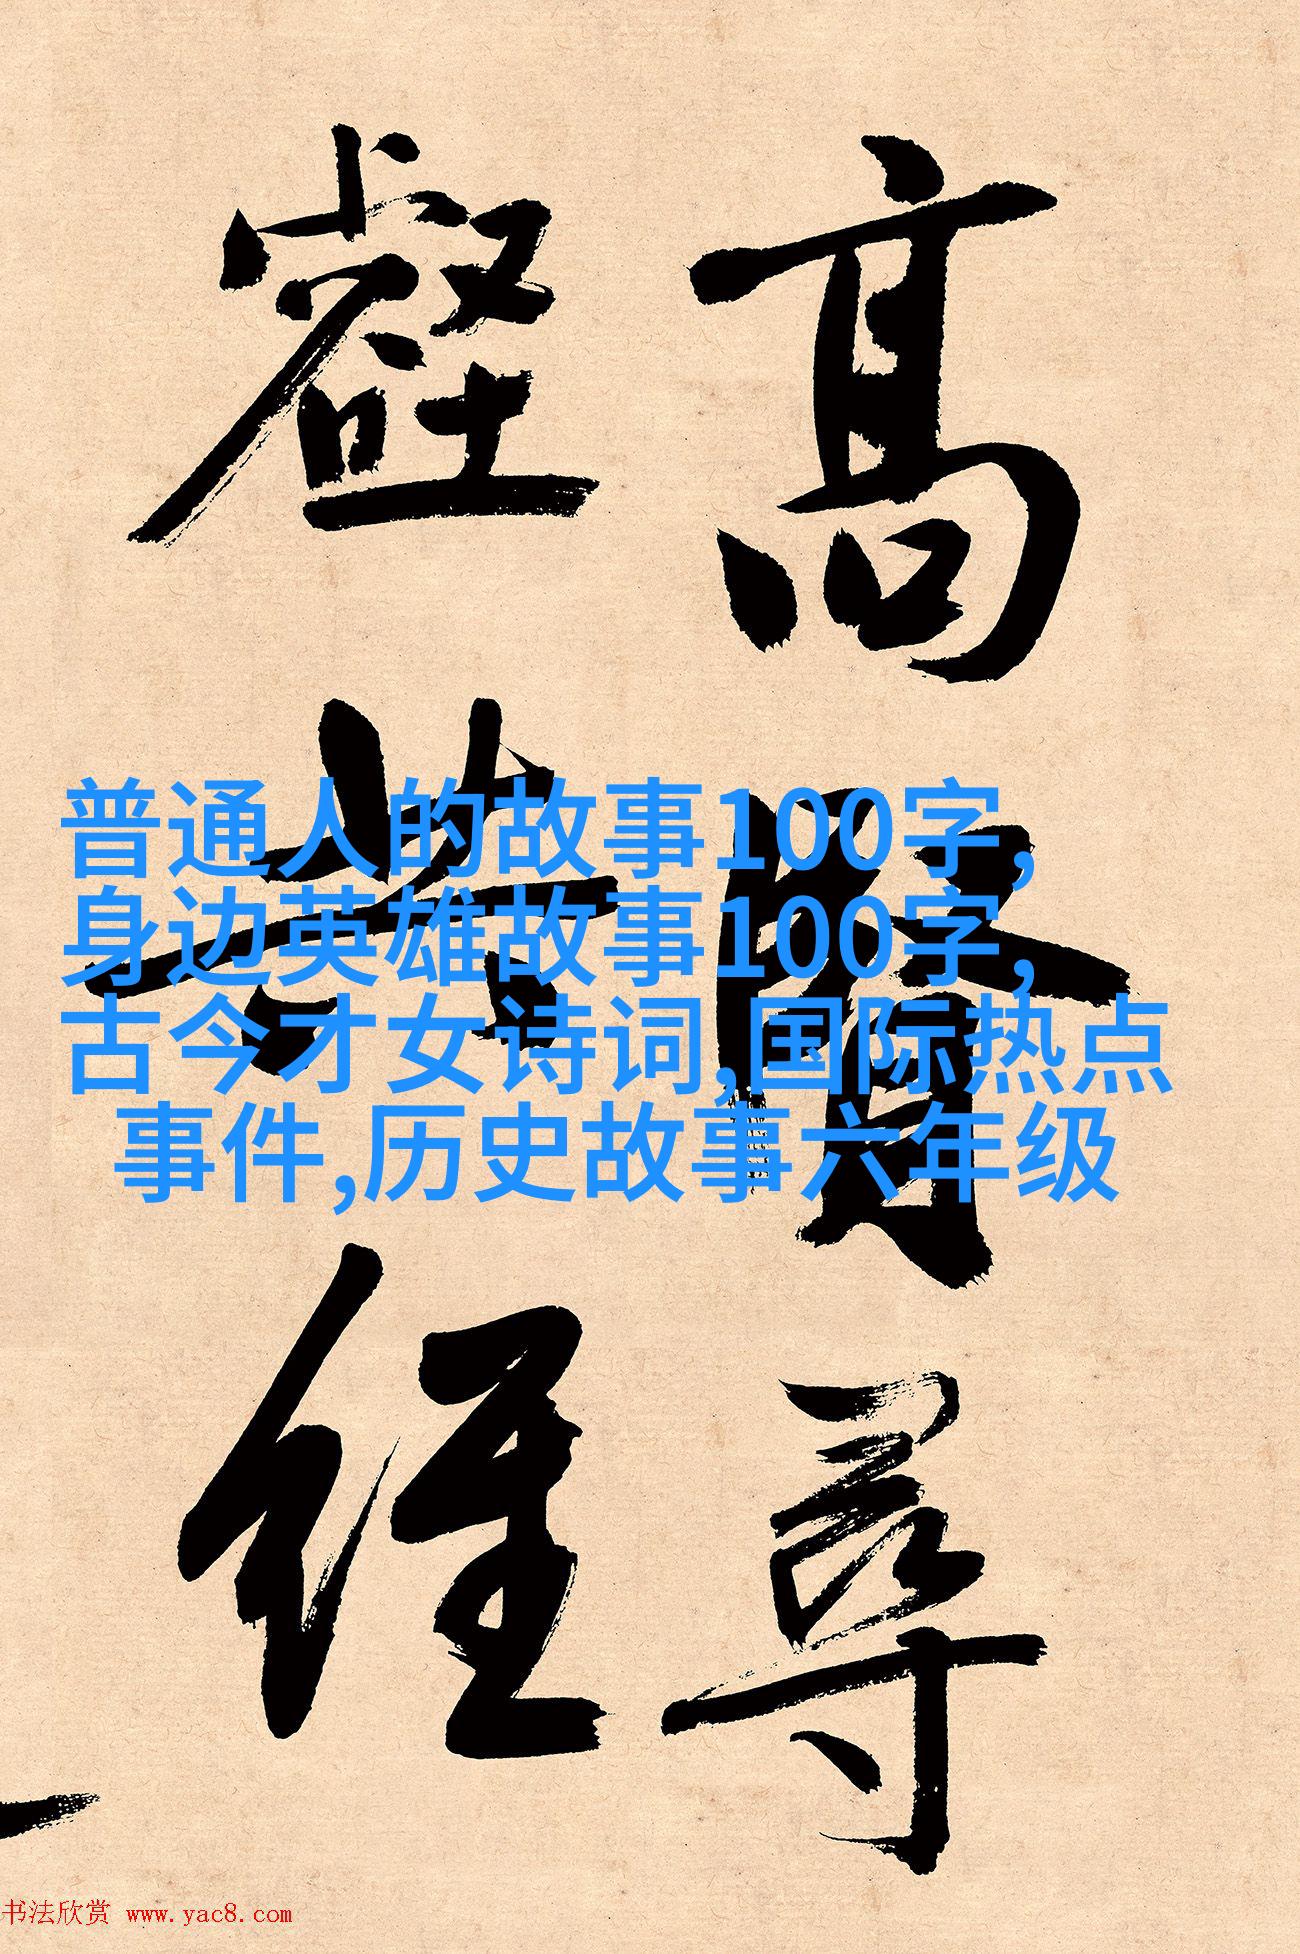 高賢尋
壑共經
普通人的故事100字,
身边英雄故事100字,
古今才女诗词,国际热点
事件,历史故事六年级
书法欣赏 www.yac8.com